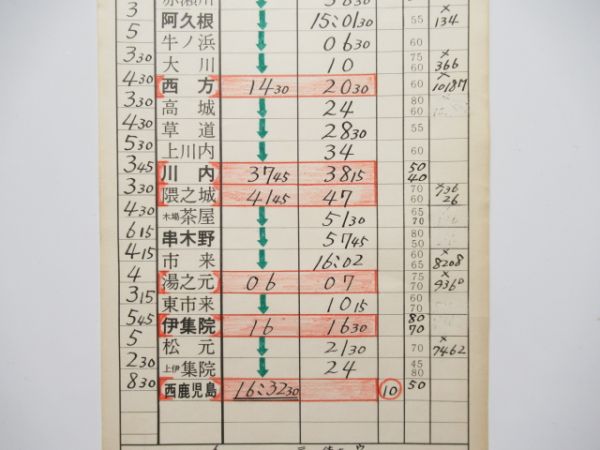 3
阿久根 ↓ 15:01 30 55 × 134
5
牛ノ浜 ↓ 06 30 60
3 30
大川 ↓ 10 75 60 × 366
4 30
西方 14 30 20 30 60 × 10187
3 30
高城 ↓ 24 80 60
4 30
草道 ↓ 28 30 55
5 30
上川内 ↓ 34 60
3 45
川内 37 45 38 15 50 40
3 30
隈之城 41 45 47 70 60 × 736 26
4 30
木場茶屋 ↓ 51 30 65 70
6 15
串木野 ↓ 57 45 80 50
4 15
市来 ↓ 16:02 60 65 × 8208
4
湯之元 06 07 75 70 × 9360
3 15
東市来 ↓ 10 15 60 70
5 45
伊集院 16 16 30 80 70
5
松元 ↓ 21 30 70 × 7462
2 30
上伊集院 ↓ 24 45 80
8 30
西鹿児島 16:32 30 10 50